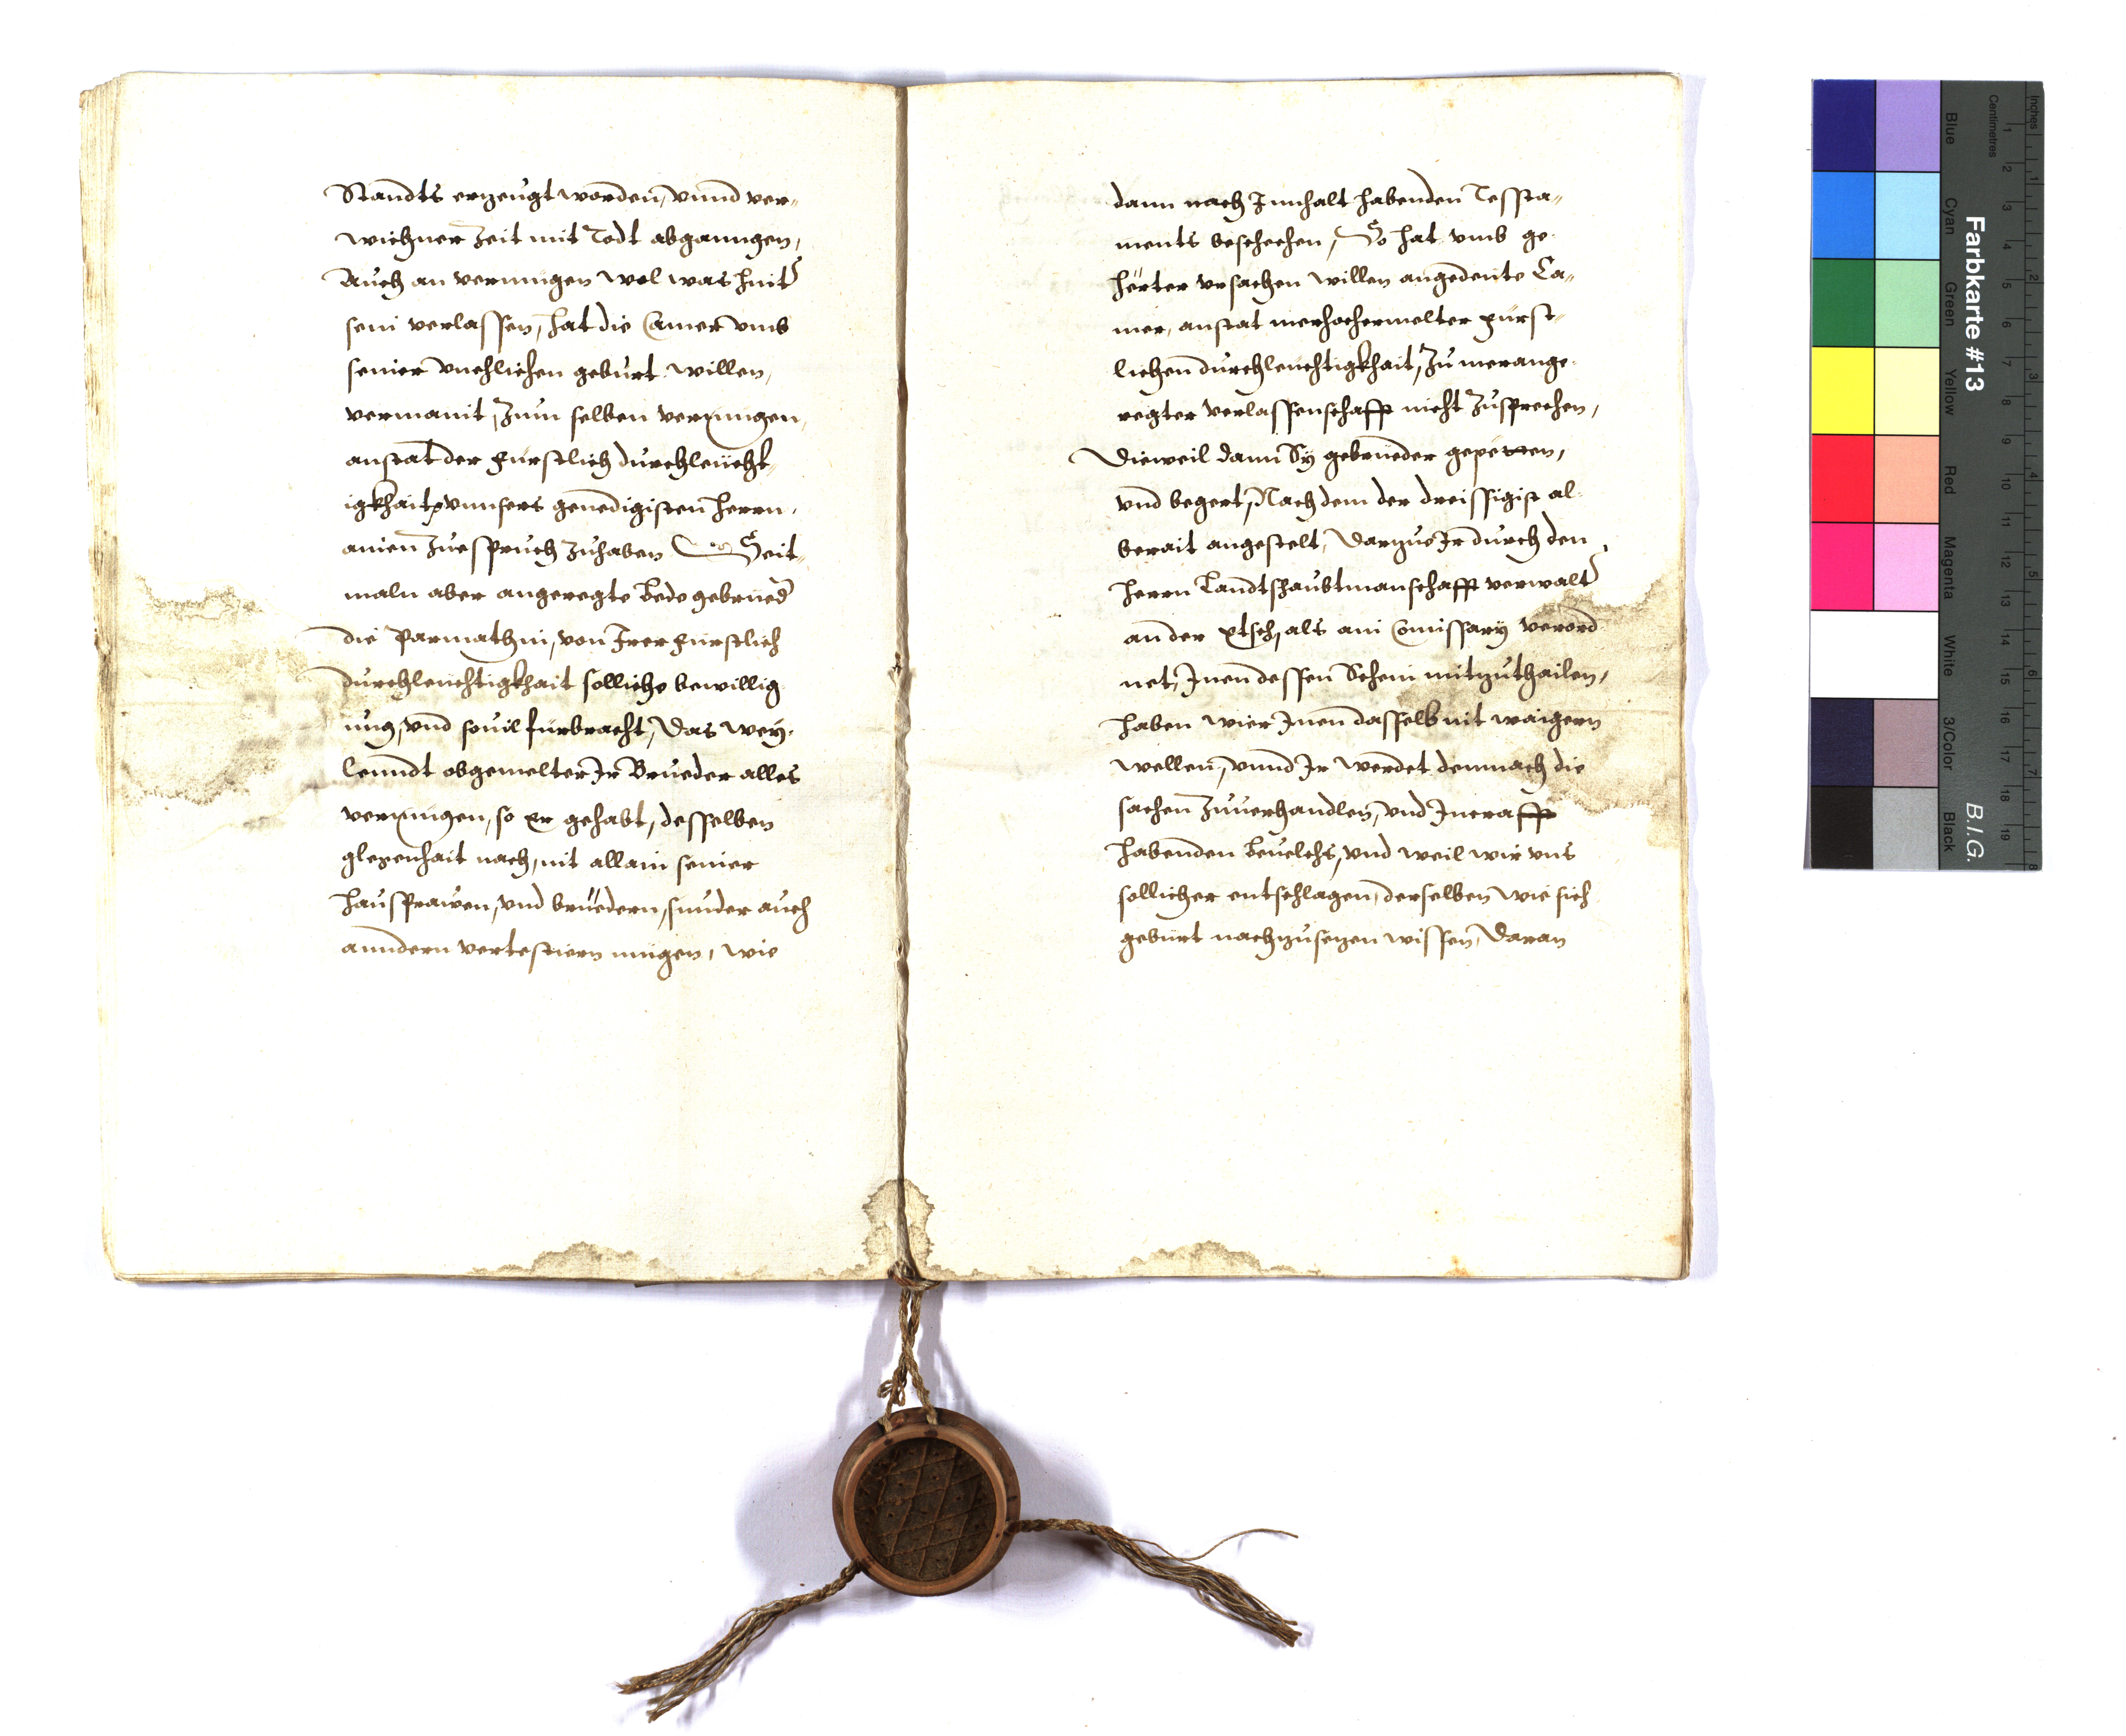 Standts erzeugt worden, vnnd ver-
wichner Zeit mit Todt abganngen,
Auch an vermugen wol was hint(er)
sein verlassen, hat die Camer vmb
seiner vnehlichen geburt willen,
vermaint, Zum selben vermugen,
anstat der Fürstlich durchleücht-
igkhait vnnsers genedigisten herrn,
ainen Zuespruch Zuhaben Seit-
maln aber angeregte bede gebrued(er)
die Parmathni, von Irer Fürstlich
durchleuchtigkhait solliche bewillig
ung, vnd souil fürbracht, Das wey-
lenndt obgemelter Ir Brueder alles
vermugen, so Er gehabt, desselben
glegenhait nach, nit allain seiner
hausfrawen, vnd brüedern, sunder auch
anndern vertestiern mügen, wie
dann nach Innhalt habenden Testa-
ments beschehen, So hat vmb ge-
hörter vrsachen willen angedeute Ca-
mer, anstat merhochermelter Fürst-
lichen durchleuchtigkhait, Zu merange-
regter verlassenschafft nicht Zusprechen,
Dieweil dann Sy gebrueder gepetten,
vnd begert, Nach dem der dreissigist al-
berait angestelt, Darzue Ir durch den
herrn Landtshaubtmanschafft verwalt(er)
an der Etsch, als ain Comissary verord
net, Inen dessen Schein mitzuthailen,
haben wier Inen dasselb nit waigern
wellen, vnnd Ir werdet demnach die
sachen Zuuerhandlen, vnd In crafft
habenden beuelchs, vnd weil wir vns
sollicher entschlagen, derselben wie sich
geburt nachzusetzen wissen, Daran
Farbkarte #13
B.I.G.
Inches
Centimetres
Blue
Cyan
Green
Yellow
Red
Magenta
White
3/Color
Black